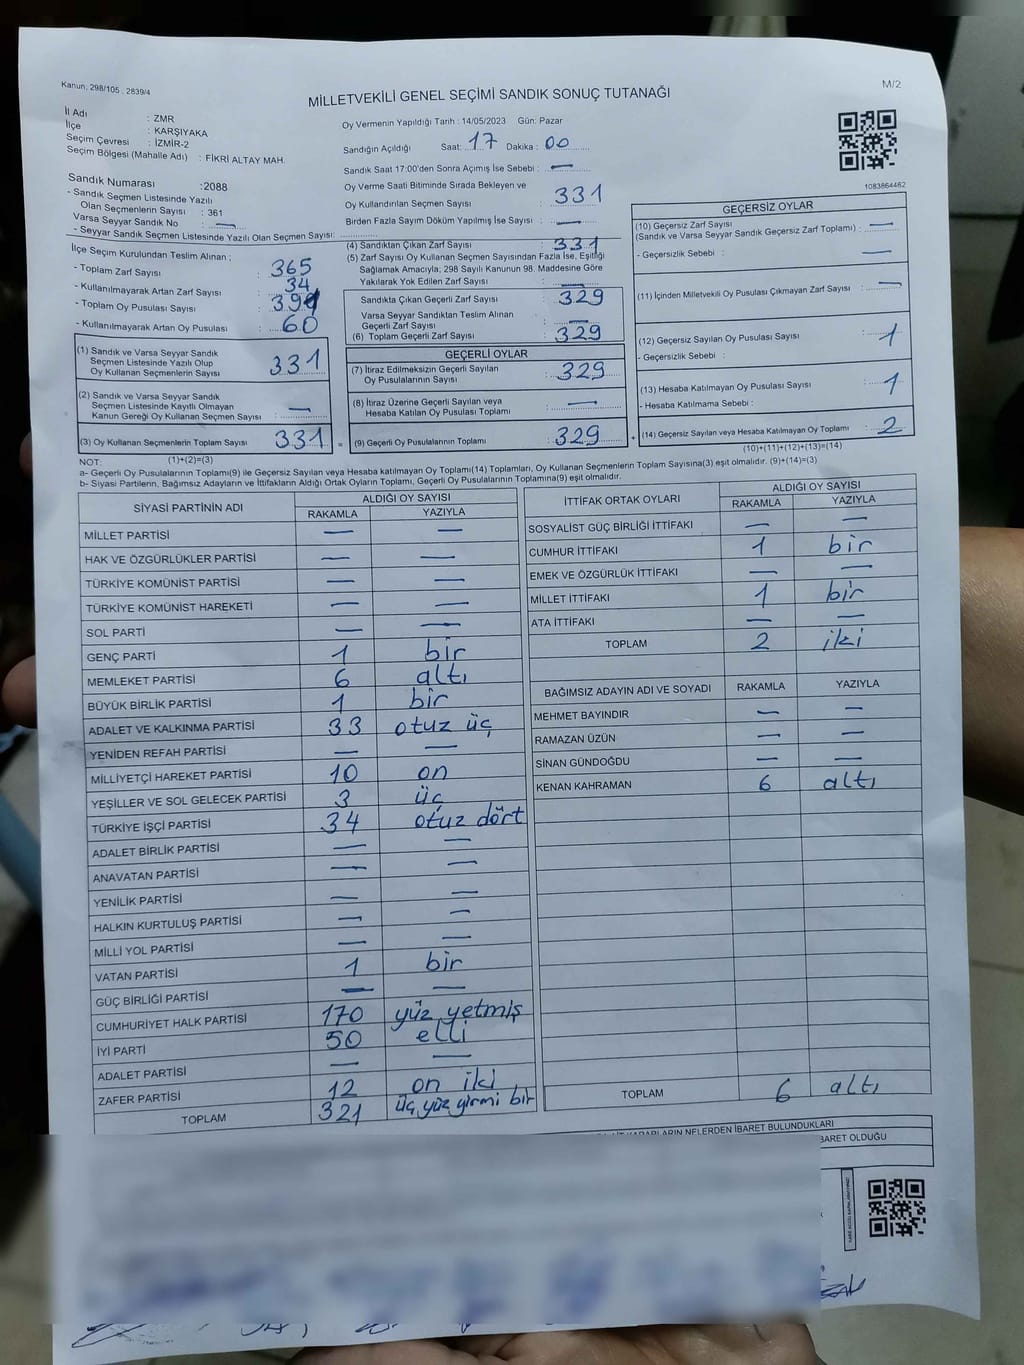 Kanun: 298/105 , 2839/4
M/2
MİLLETVEKİLİ GENEL SEÇİMİ SANDIK SONUÇ TUTANAĞI
İl Adı : ZMR
İlçe : KARŞIYAKA
Seçim Çevresi : İZMİR-2
Seçim Bölgesi (Mahalle Adı) : FİKRİ ALTAY MAH.
Sandık Numarası :2088
- Sandık Seçmen Listesinde Yazılı
Olan Seçmenlerin Sayısı : 361
Varsa Seyyar Sandık No : —
- Seyyar Sandık Seçmen Listesinde Yazılı Olan Seçmen Sayısı:
Oy Vermenin Yapıldığı Tarih : 14/05/2023 Gün: Pazar
Sandığın Açıldığı Saat: 17 Dakika: 00
Sandık Saat 17:00'den Sonra Açımış İse Sebebi : —
Oy Verme Saati Bitiminde Sırada Bekleyen ve
Oy Kullandırılan Seçmen Sayısı : 331
Birden Fazla Sayım Döküm Yapılmış İse Sayısı : —
1083864462
İlçe Seçim Kurulundan Teslim Alınan ;
- Toplam Zarf Sayısı : 365
- Kullanılmayarak Artan Zarf Sayısı : 34
- Toplam Oy Pusulası Sayısı :
- Kullanılmayarak Artan Oy Pusulası : 60
(1) Sandık ve Varsa Seyyar Sandık
Seçmen Listesinde Yazılı Olup
Oy Kullanan Seçmenlerin Sayısı : 331
(2) Sandık ve Varsa Seyyar Sandık
Seçmen Listesinde Kayıtlı Olmayan
Kanun Gereği Oy Kullanan Seçmen Sayısı : —
(3) Oy Kullanan Seçmenlerin Toplam Sayısı : 331 =
(1)+(2)=(3)
(4) Sandıktan Çıkan Zarf Sayısı : 331
(5) Zarf Sayısı Oy Kullanan Seçmen Sayısından Fazla İse, Eşitliği
Sağlamak Amacıyla; 298 Sayılı Kanunun 98. Maddesine Göre
Yakılarak Yok Edilen Zarf Sayısı : —
Sandıkta Çıkan Geçerli Zarf Sayısı : 329
Varsa Seyyar Sandıktan Teslim Alınan
Geçerli Zarf Sayısı : —
(6) Toplam Geçerli Zarf Sayısı : 329
GEÇERLİ OYLAR
(7) İtiraz Edilmeksizin Geçerli Sayılan
Oy Pusulalarının Sayısı : 329
(8) İtiraz Üzerine Geçerli Sayılan veya
Hesaba Katılan Oy Pusulası Toplamı : —
(9) Geçerli Oy Pusulalarının Toplamı : 329 +
GEÇERSİZ OYLAR
(10) Geçersiz Zarf Sayısı
(Sandık ve Varsa Seyyar Sandık Geçersiz Zarf Toplamı) : —
- Geçersizlik Sebebi : —
(11) İçinden Milletvekili Oy Pusulası Çıkmayan Zarf Sayısı : —
(12) Geçersiz Sayılan Oy Pusulası Sayısı : 1
- Geçersizlik Sebebi :
(13) Hesaba Katılmayan Oy Pusulası Sayısı : 1
- Hesaba Katılmama Sebebi :
(14) Geçersiz Sayılan veya Hesaba Katılmayan Oy Toplamı : 2
(10)+(11)+(12)+(13)=(14)
NOT:
a- Geçerli Oy Pusulalarının Toplamı(9) ile Geçersiz Sayılan veya Hesaba katılmayan Oy Toplamı(14) Toplamları, Oy Kullanan Seçmenlerin Toplam Sayısına(3) eşit olmalıdır. (9)+(14)=(3)
b- Siyasi Partilerin, Bağımsız Adayların ve İttifakların Aldığı Ortak Oyların Toplamı, Geçerli Oy Pusulalarının Toplamına(9) eşit olmalıdır.
SİYASİ PARTİNİN ADI ALDIĞI OY SAYISI
RAKAMLA YAZIYLA
MİLLET PARTİSİ — —
HAK VE ÖZGÜRLÜKLER PARTİSİ — —
TÜRKİYE KOMÜNİST PARTİSİ — —
TÜRKİYE KOMÜNİST HAREKETİ — —
SOL PARTİ — —
GENÇ PARTİ 1 bir
MEMLEKET PARTİSİ 6 altı
BÜYÜK BİRLİK PARTİSİ 1 bir
ADALET VE KALKINMA PARTİSİ 33 otuz üç
YENİDEN REFAH PARTİSİ — —
MİLLİYETÇİ HAREKET PARTİSİ 10 on
YEŞİLLER VE SOL GELECEK PARTİSİ 3 üç
TÜRKİYE İŞÇİ PARTİSİ 34 otuz dört
ADALET BİRLİK PARTİSİ — —
ANAVATAN PARTİSİ — —
YENİLİK PARTİSİ — —
HALKIN KURTULUŞ PARTİSİ — —
MİLLİ YOL PARTİSİ — —
VATAN PARTİSİ 1 bir
GÜÇ BİRLİĞİ PARTİSİ — —
CUMHURİYET HALK PARTİSİ 170 yüz yetmiş
İYİ PARTİ 50 elli
ADALET PARTİSİ — —
ZAFER PARTİSİ 12 on iki
TOPLAM 321 üç yüz yirmi bir
İTTİFAK ORTAK OYLARI ALDIĞI OY SAYISI
RAKAMLA YAZIYLA
SOSYALİST GÜÇ BİRLİĞİ İTTİFAKI — —
CUMHUR İTTİFAKI 1 bir
EMEK VE ÖZGÜRLÜK İTTİFAKI — —
MİLLET İTTİFAKI 1 bir
ATA İTTİFAKI — —
TOPLAM 2 iki
BAĞIMSIZ ADAYIN ADI VE SOYADI RAKAMLA YAZIYLA
MEHMET BAYINDIR — —
RAMAZAN ÜZÜN — —
SİNAN GÜNDOĞDU — —
KENAN KAHRAMAN 6 altı
TOPLAM 6 altı
KARARLARIN NELERDEN İBARET BULUNDUKLARI
BARET OLDUĞU